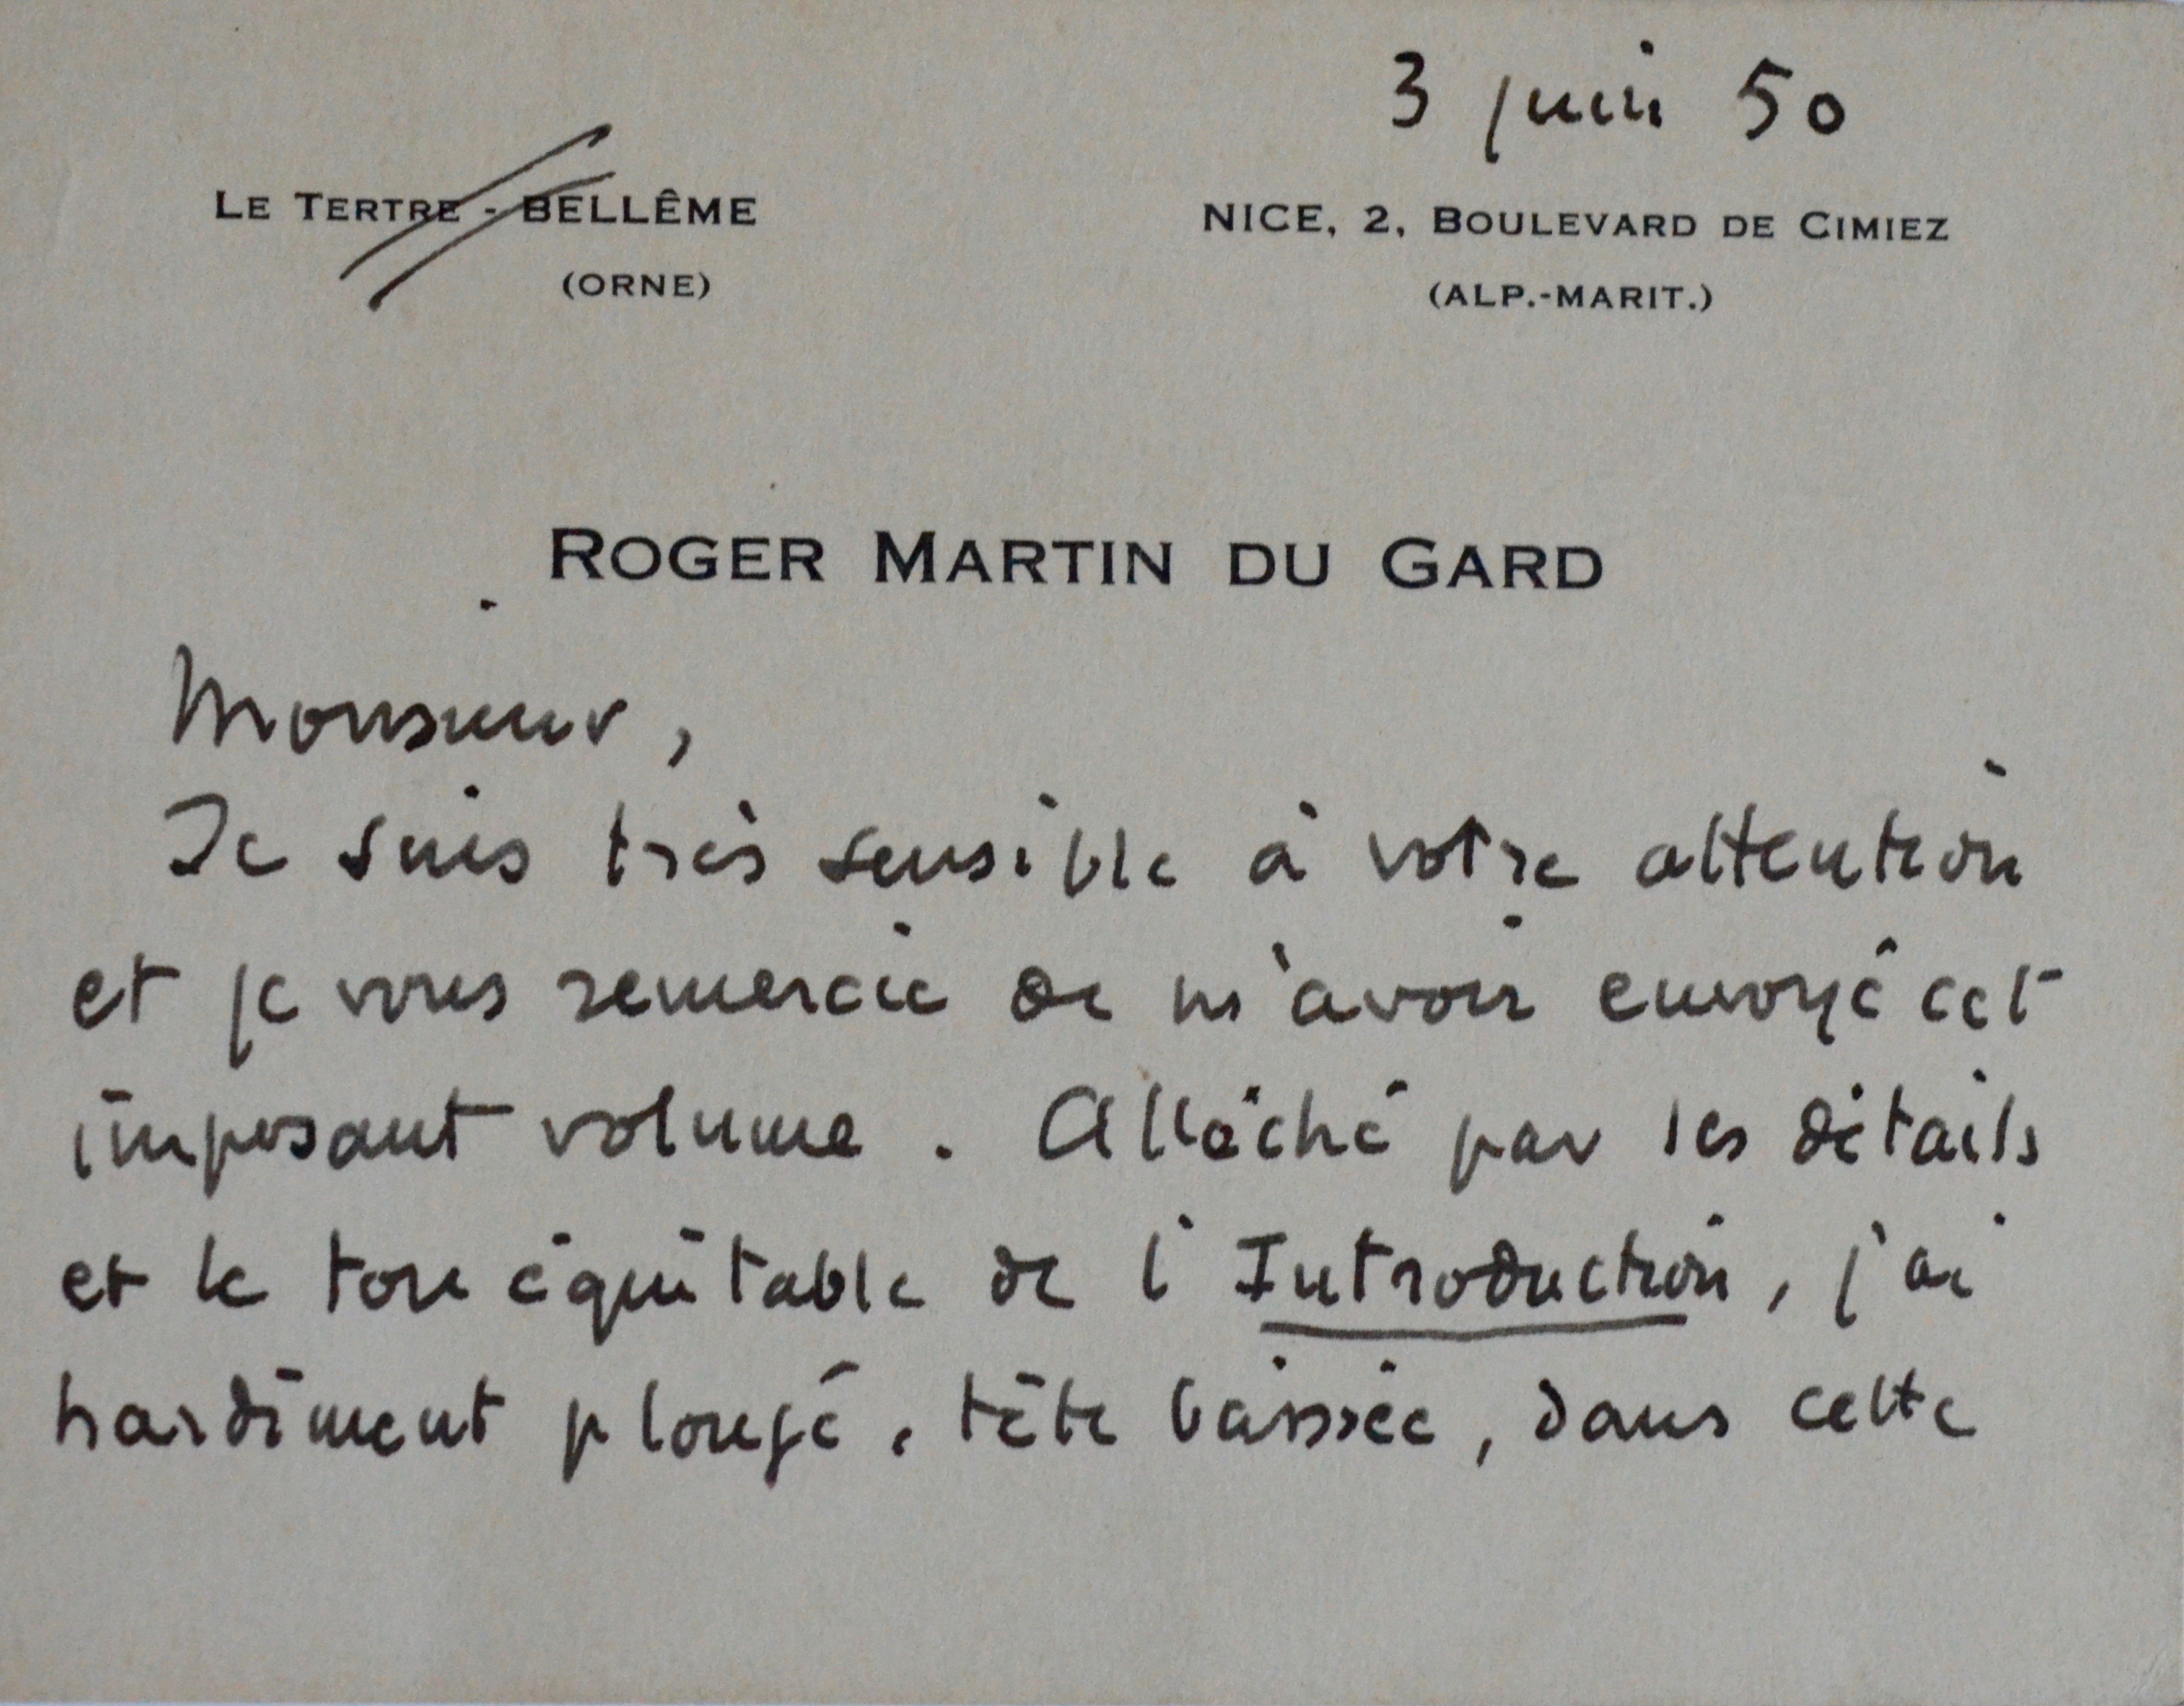 3 juin 50
LE TERTRE - BELLÊME
(ORNE)
NICE, 2, BOULEVARD DE CIMIEZ
(ALP.-MARIT.)
ROGER MARTIN DU GARD
Monsieur,
Je suis très sensible à votre attention
et je vous remercie de m'avoir envoyé cet
imposant volume. Alléché par les détails
et le ton équitable de l'Introduction, j'ai
hardiment plongé, tête baissée, dans cette